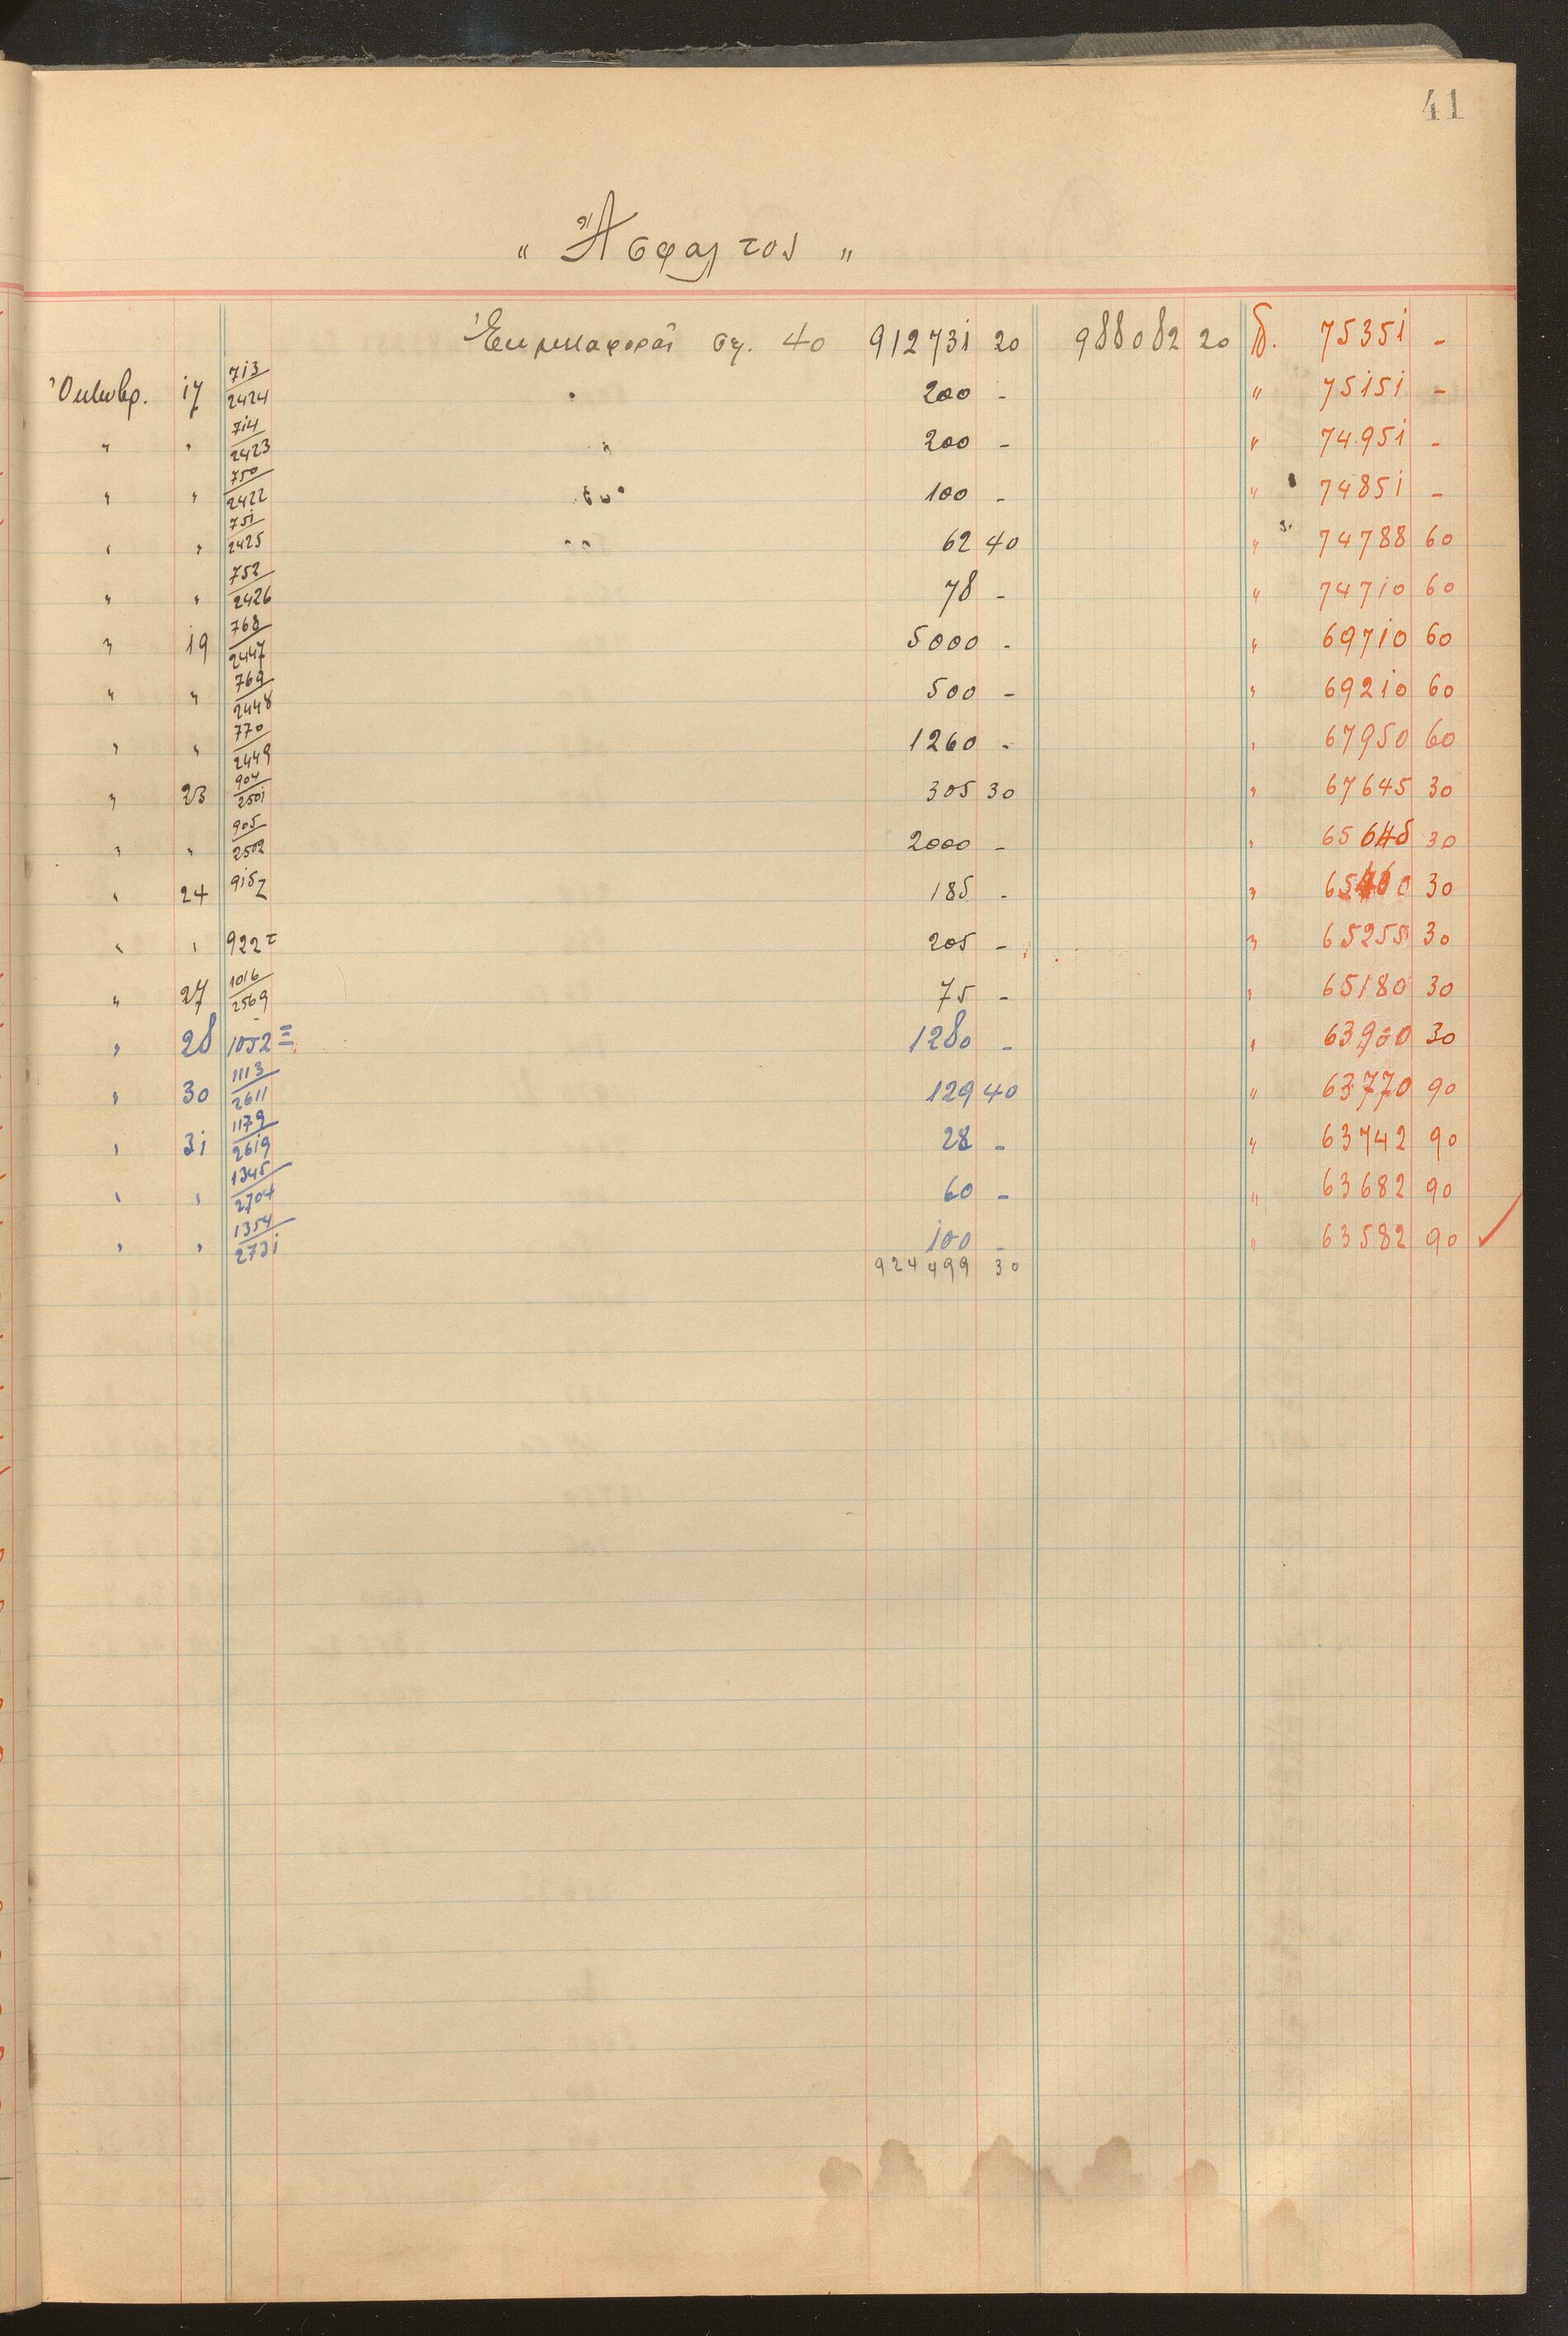 41
" Ἄσφαλτος "
Ἐκ μεταφορᾶς σελ. 40 912731 20 988082 20 δ. 75351 -
Ὀκτωβρ. 17 713/2424 200 - " 75151 -
" " 714/2423 200 - " 74951 -
" " 750/2422 100 - " 74851 -
" " 751/2425 62 40 " 74788 60
" " 752/2426 78 - " 74710 60
" 19 768/2447 5000 - " 69710 60
" " 769/2448 500 - " 69210 60
" " 770/2449 1260 - " 67950 60
" 23 904/2501 305 30 " 67645 30
" " 905/2502 2000 - " 65645 30
" 24 915 185 - " 65460 30
" " 922 205 - " 65255 30
" 27 1016/2569 75 - " 65180 30
" 28 1052 1280 - " 63900 30
" 30 1113/2611 129 40 " 63770 90
" 31 1179/2619 28 - " 63742 90
" " 1345/2704 60 - " 63682 90
" " 1354/2731 100 - " 63582 90
924499 30